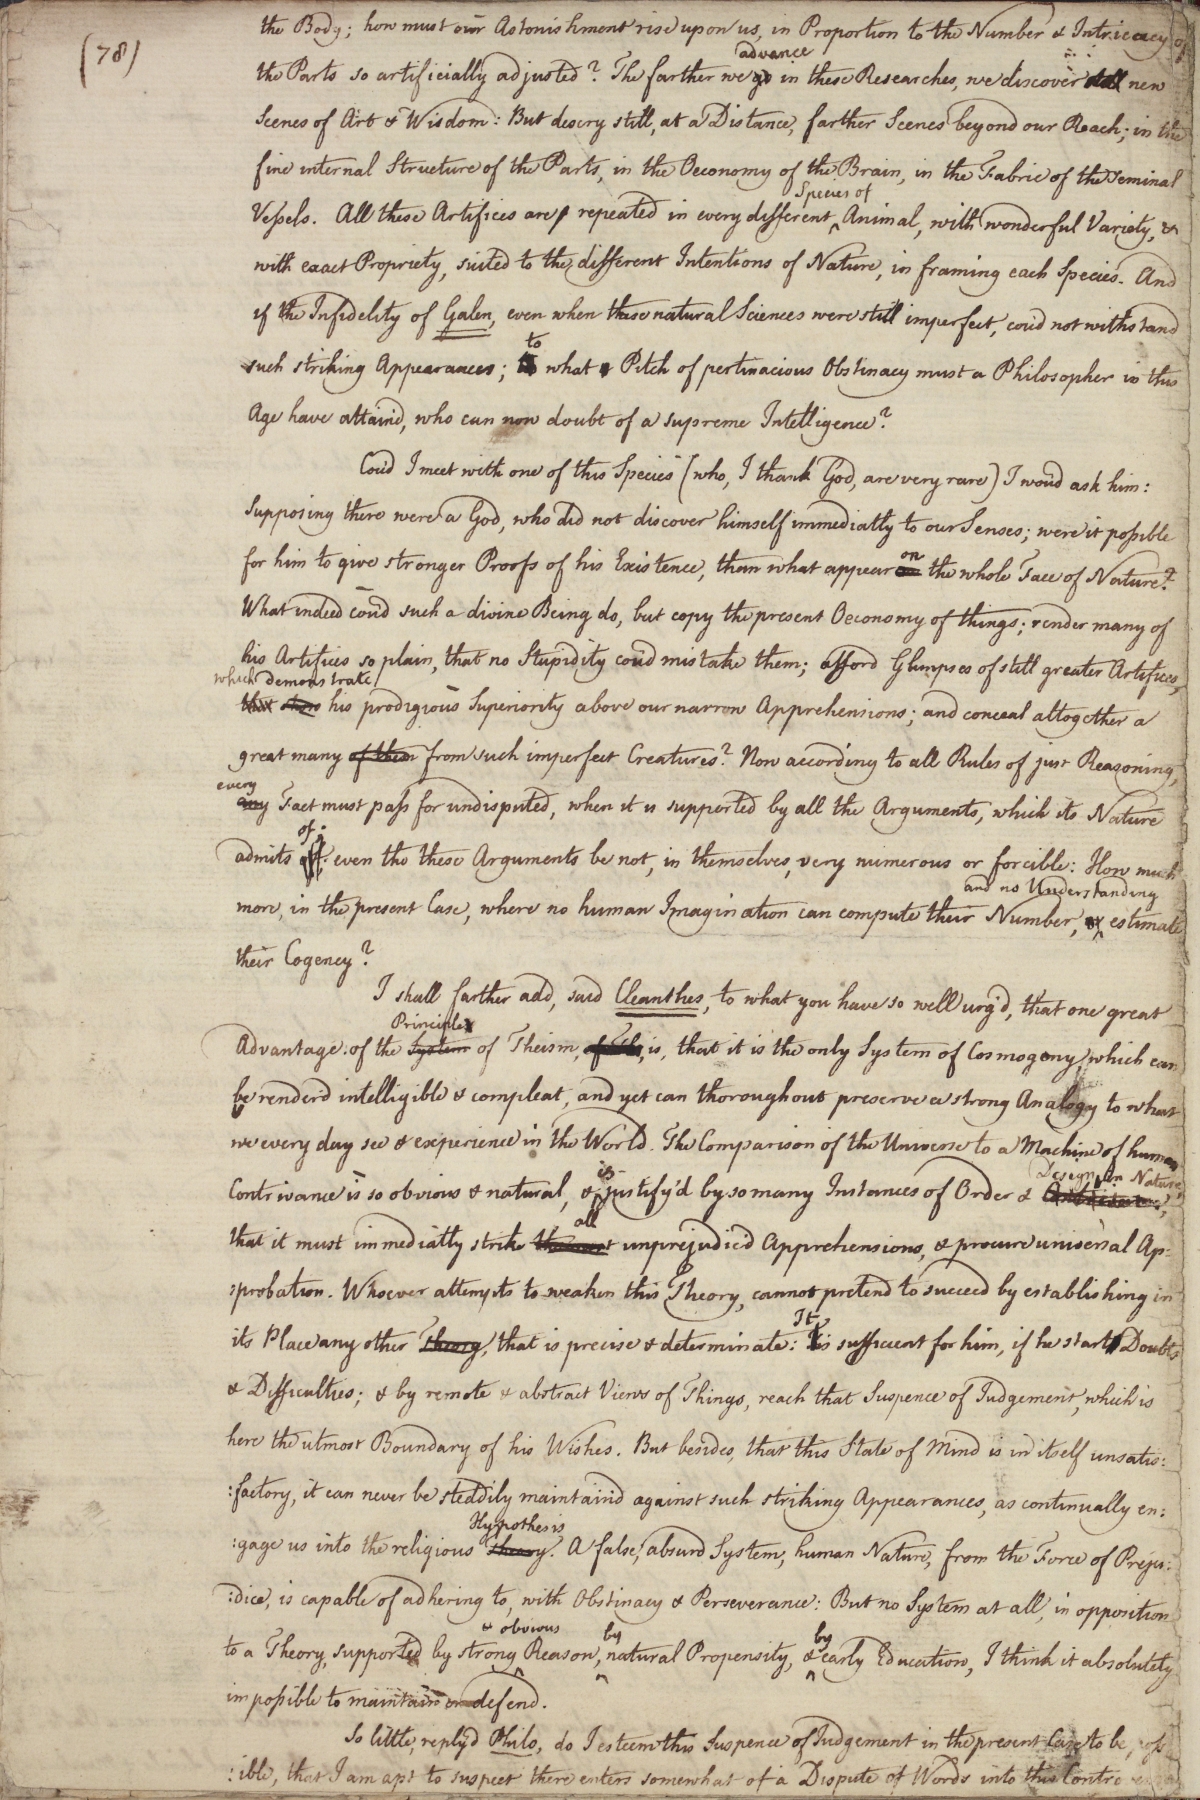 (78)
the Body; how must our Astonishment rise upon us, in Proportion to the Number & Intricacy of
advance
the Parts so artificially adjusted? The farther we go in these Researches, we discover still new
Scenes of Art & Wisdom: But descry still, at a Distance, farther Scenes beyond our Reach; in the
fine internal Structure of the Parts, in the Oeconomy of the Brain, in the Fabric of the seminal
Species of
Vessels. All these Artifices are repeated in every different ‸ Animal, with wonderful Variety, &
with exact Propriety, suited to the different Intentions of Nature, in framing each Species. And
if the Infidelity of Galen, even when these natural Sciences were still imperfect, coud not withstand
to
such striking Appearances; what Pitch of pertinacious Obstinacy must a Philosopher in this
Age have attaind, who can now doubt of a supreme Intelligence?
Coud I meet with one of this Species (who, I thank God, are very rare) I woud ask him:
Supposing there were a God, who did not discover himself immediatly to our Senses; were it possible
on
for him to give stronger Proofs of his Existence, than what appear the whole Face of Nature?
What indeed coud such a divine Being do, but copy the present Oeconomy of things; render many of
his Artifices so plain, that no Stupidity coud mistake them; afford Glimpses of still greater Artifices,
which demonstrate
that show his prodigious Superiority above our narrow Apprehensions; and conceal altogether a
great many of them from such imperfect Creatures? Now according to all Rules of just Reasoning,
every
any Fact must pass for undisputed, when it is supported by all the Arguments, which its Nature
of;
admits of; even tho these Arguments be not, in themselves, very numerous or forcible: How much
and no Understanding
more, in the present Case, where no human Imagination can compute their Number, or ‸ estimate
their Cogency?
I shall farther add, said Cleanthes, to what you have so well urg'd, that one great
Principle
Advantage of the System of Theism is, that it is the only System of Cosmogony, which can
be renderd intelligible & compleat, and yet can thoroughout preserve a strong Analogy to what
we every day see & experience in the World. The Comparison of the Universe to a Machine of human
is Design in Nature
Contrivance is so obvious & natural, & ‸ justify'd by so many Instances of Order &
all
that it must immediatly strike the most unprejudic'd Apprehensions, & procure universal Ap-
:probation. Whoever attempts to weaken this Theory, cannot pretend to succeed by establishing in
It
its Place any other Theory, that is precise & determinate: is sufficient for him, if he start Doubts
& Difficulties; & by remote & abstract Views of Things, reach that Suspence of Judgement, which is
here the utmost Boundary of his Wishes. But besides, that this State of Mind is in itself unsatis:
:factory, it can never be steddily maintaind against such striking Appearances, as continually en:
Hypothesis
:gage us into the religious Theory. A false, absurd System, human Nature, from the Force of Preju:
:dice, is capable of adhering to, with Obstinacy & Perseverance: But no System at all, in opposition
& obvious by by
to a Theory, supported by strong ‸ Reason, ‸ natural Propensity, & ‸ early Education, I think it absolutely
impossible to maintain or defend.
So little, reply'd Philo, do I esteem this Suspence of Judgement in the present Case to be, poss
:ible, that I am apt to suspect there enters somewhat of a Dispute of Words into this